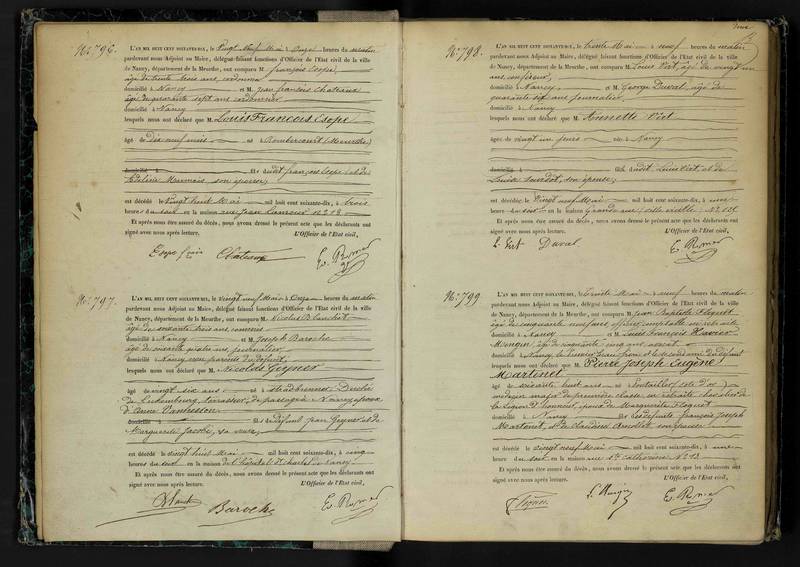 N° 796.
L'AN MIL HUIT CENT SOIXANTE-DIX, le Vingt Neuf Mai à Onze heures du matin
pardevant nous Adjoint au Maire, délégué faisant fonctions d'Officier de l'Etat civil de la ville
de Nancy, département de la Meurthe, ont comparu M. françois Esope,
âgé de trente trois ans, cordonnier
domicilié à Nancy et M. Jean françois Chateaux
âgé de quarante sept ans cordonnier
domicilié à Nancy
lesquels nous ont déclaré que M. Louis François Esope
âgé de Dix neuf mois né à (Meurthe)
domicilié à fils dudit françois Esope et de
son épouse,
est décédé le Vingt huit Mai mil huit cent soixante-dix, à trois
heures du soir en la maison rue Jean Lamour N° 18
Et après nous être assuré du décès, nous avons dressé le présent acte que les déclarants ont
signé avec nous après lecture. L'Officier de l'Etat civil,
Esope fçois Chateaux
N° 797.
L'AN MIL HUIT CENT SOIXANTE-DIX, le vingt neuf Mai à Onze heures du matin
pardevant nous Adjoint au Maire, délégué faisant fonctions d'Officier de l'Etat civil de la ville
de Nancy, département de la Meurthe, ont comparu M. Nicolas Blanchot
âgé de soixante trois ans, commis
domicilié à Nancy et M. Joseph Baroche
âgé de soixante quatre ans, journalier
domicilié à Nancy non parents du défunt
lesquels nous ont déclaré que M. Nicolas Geyner
âgé de vingt six ans né à Duché
de Luxembourg, terrassier, de passage à Nancy époux
D'Anne
domicilié à fils de défunt Jean Geyner et de
Marguerite Jacobi, sa veuve,
est décédé le vingt huit Mai mil huit cent soixante-dix, à cinq
heures du soir en la maison de l'hôpital St Charles de Nancy
Et après nous être assuré du décès, nous avons dressé le présent acte que les déclarants ont
signé avec nous après lecture. L'Officier de l'Etat civil,
Baroche
N° 798.
L'AN MIL HUIT CENT SOIXANTE-DIX, le trente Mai à neuf heures du matin
pardevant nous Adjoint au Maire, délégué faisant fonctions d'Officier de l'Etat civil de la ville
de Nancy, département de la Meurthe, ont comparu M. Louis Virt, âgé de vingt un
ans
domicilié à Nancy, et M. George Duval, âgé de
quarante six ans journalier
domicilié à Nancy
lesquels nous ont déclaré que M. Annette Virt
âgée de vingt un jours née à Nancy
domicilié à fille dudit Louis Virt et de
Louise son épouse,
est décédée le Vingt neuf Mai mil huit cent soixante-dix, à une
heure du soir en la maison Grande rue (ville vieille) N°
Et après nous être assuré du décès, nous avons dressé le présent acte que les déclarants ont
signé avec nous après lecture. L'Officier de l'Etat civil,
L. Virt Duval
N° 799
L'AN MIL HUIT CENT SOIXANTE-DIX, le Trente Mai à neuf heures du matin
pardevant nous Adjoint au Maire, délégué faisant fonctions d'Officier de l'Etat civil de la ville
de Nancy, département de la Meurthe, ont comparu M. Jean Baptiste Floquet
âgé de cinquante neuf ans officier comptable en retraite
domicilié à Nancy et M. Louis François Xavier
Mengin, âgé de cinquante cinq ans avocat
domicilié à Nancy, le premier beau frère et le second ami du défunt
lesquels nous ont déclaré que M. Pierre Joseph Eugène
Martenet
âgé de soixante huit ans né à Pontailler (Côte d'or)
médecin major de première classe en retraite chevalier de
la Légion d'honneur, époux de Marguerite Floquet
domicilié à Nancy fils de défunts François Joseph
Martenet, et de Claudine son épouse,
est décédé le vingt neuf Mai mil huit cent soixante-dix, à une
heure du soir en la maison rue Ste Catherine N° 13
Et après nous être assuré du décès, nous avons dressé le présent acte que les déclarants ont
signé avec nous après lecture. L'Officier de l'Etat civil,